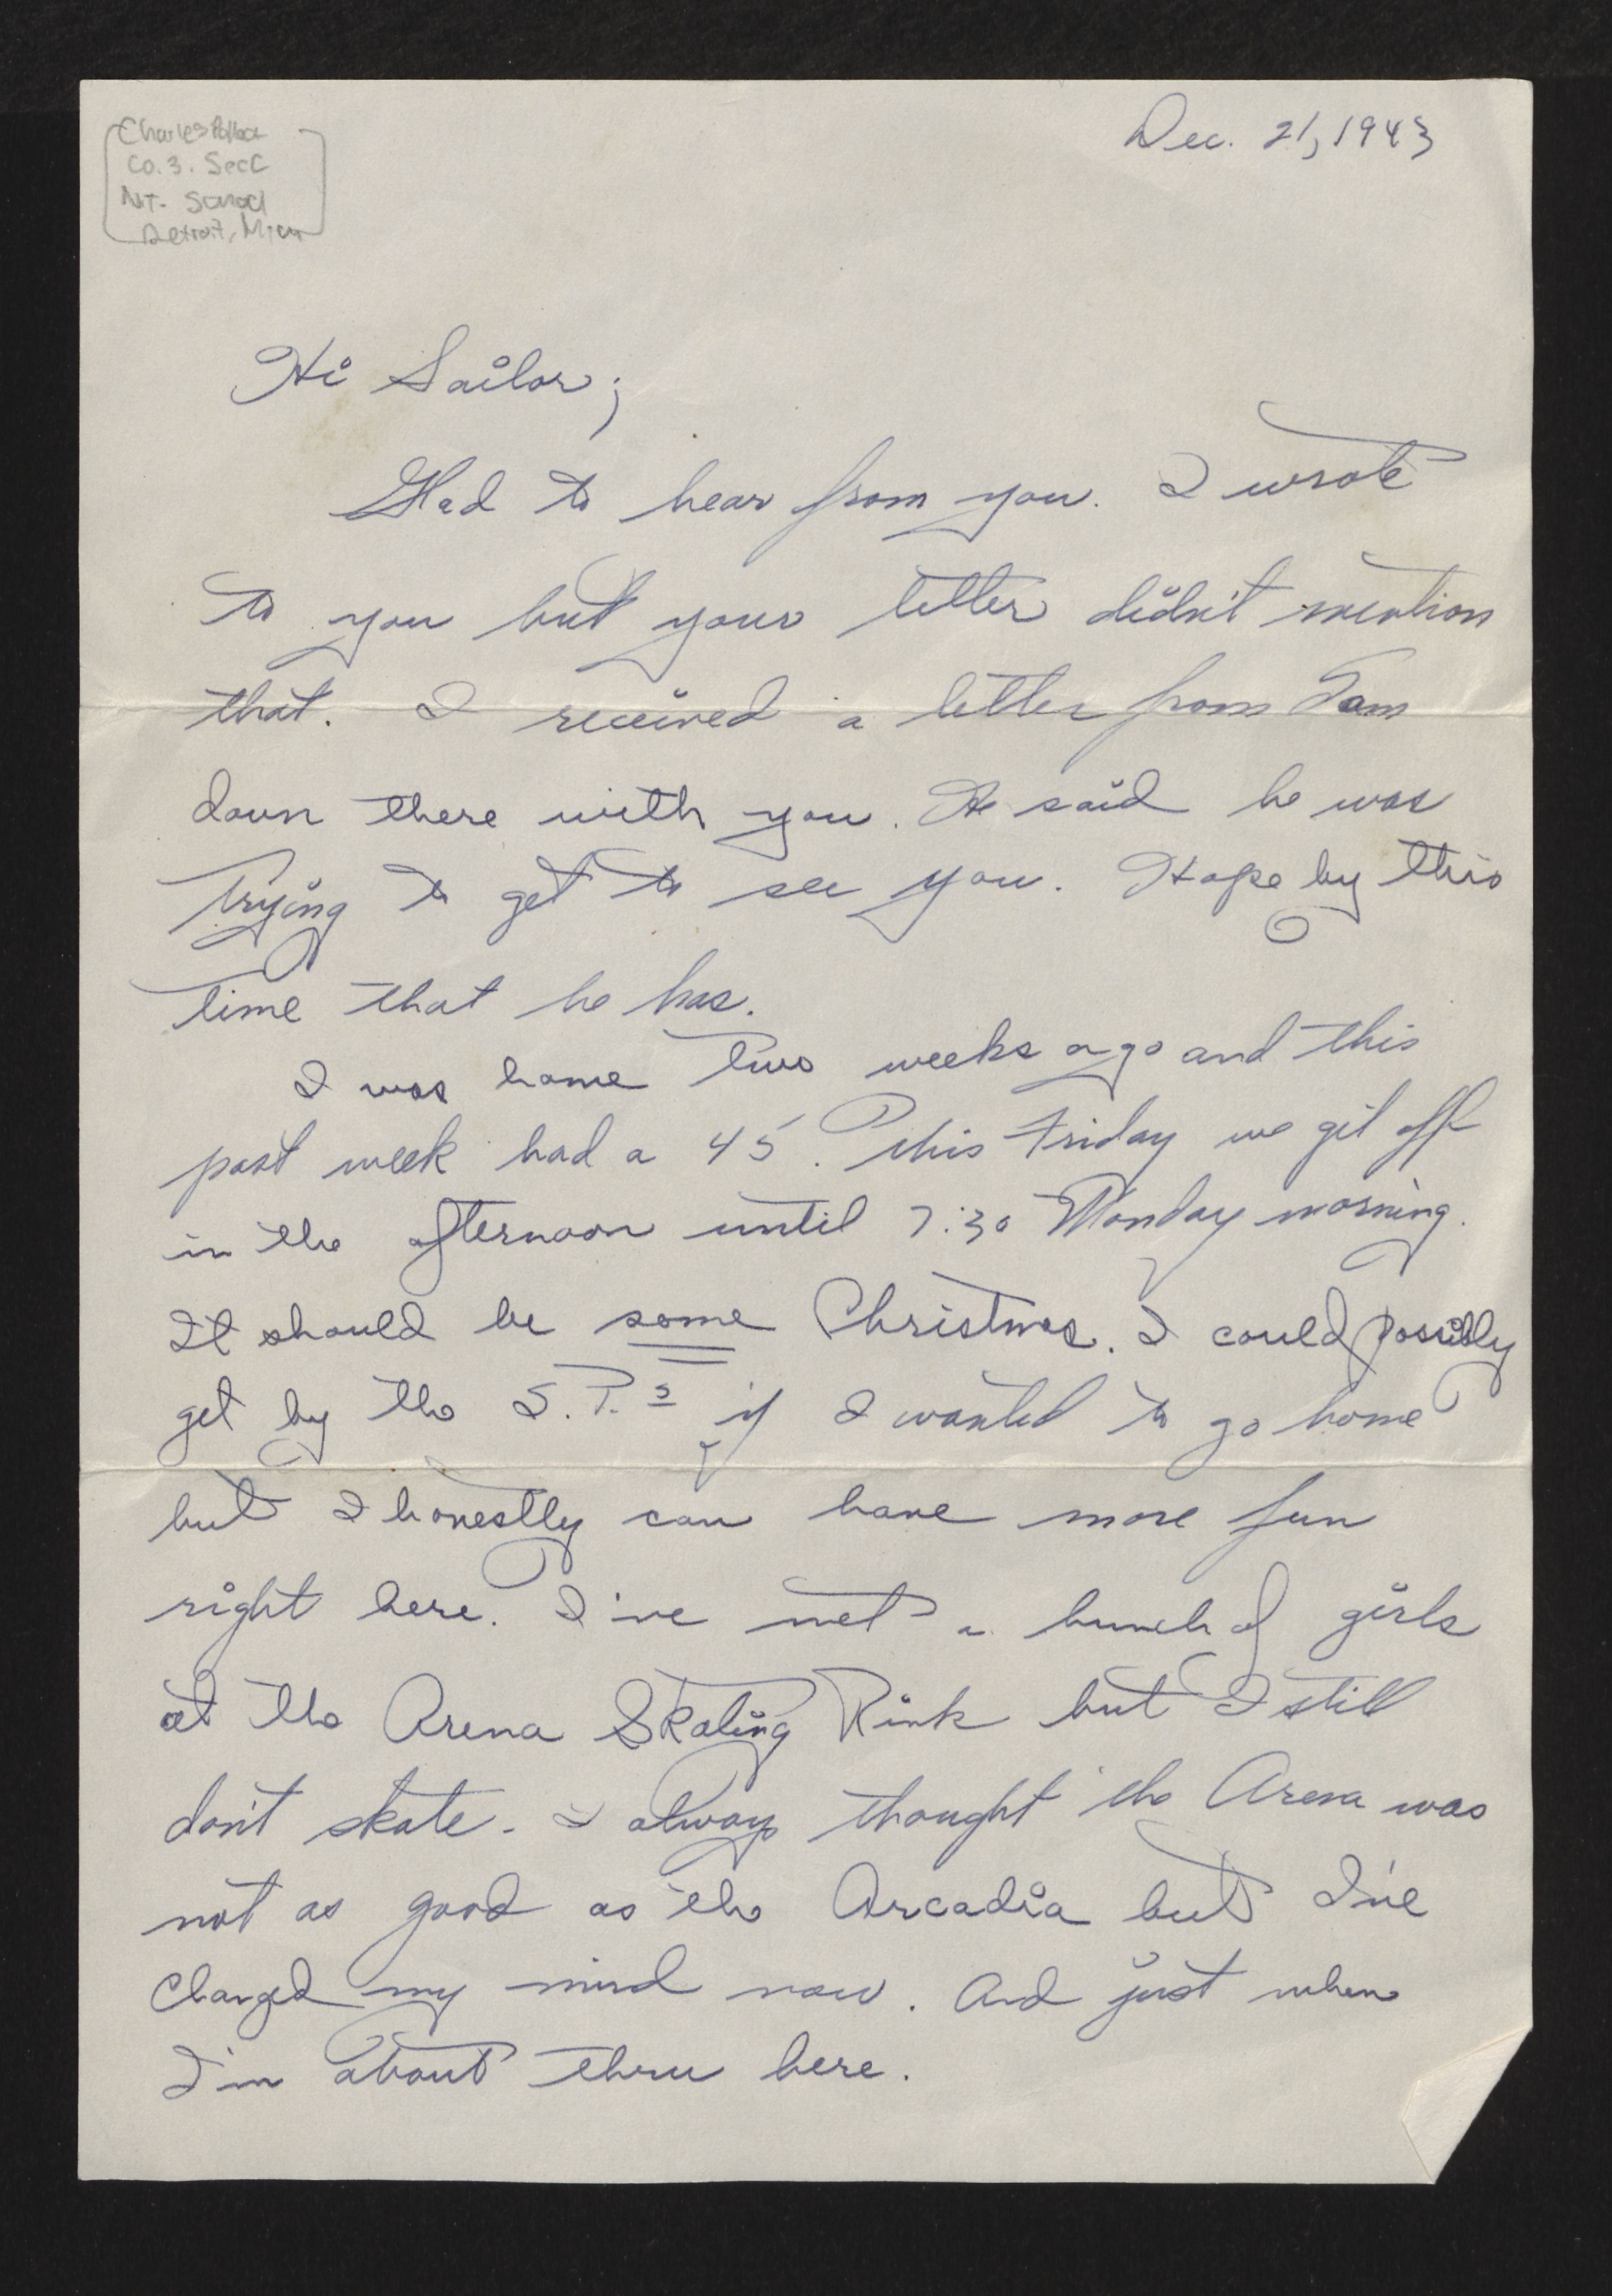 Charles Pollack
Co. 3. Sec C
NT. School
Detroit, Mich
Dec. 21, 1943
Hi Sailor;
Glad to hear from you. I wrote
to you but your letter didn't mention
that. I received a letter from Sam
down there with you. He said he was
trying to get to see you. Hope by this
time that he has.
I was home two weeks ago and this
past week had a 45. This Friday we git off
in the afternoon until 7:30 Monday morning.
It should be some Christmas. I could possibly
get by the S.P.s if I wanted to go home
but I honestly can have more fun
right here. I've met a bunch of girls
at the Arena Skating Rink but I still
don't skate. I always thought the Arena was
not as good as the Arcadia but I've
changed my mind now. And just when
I'm about thru here.